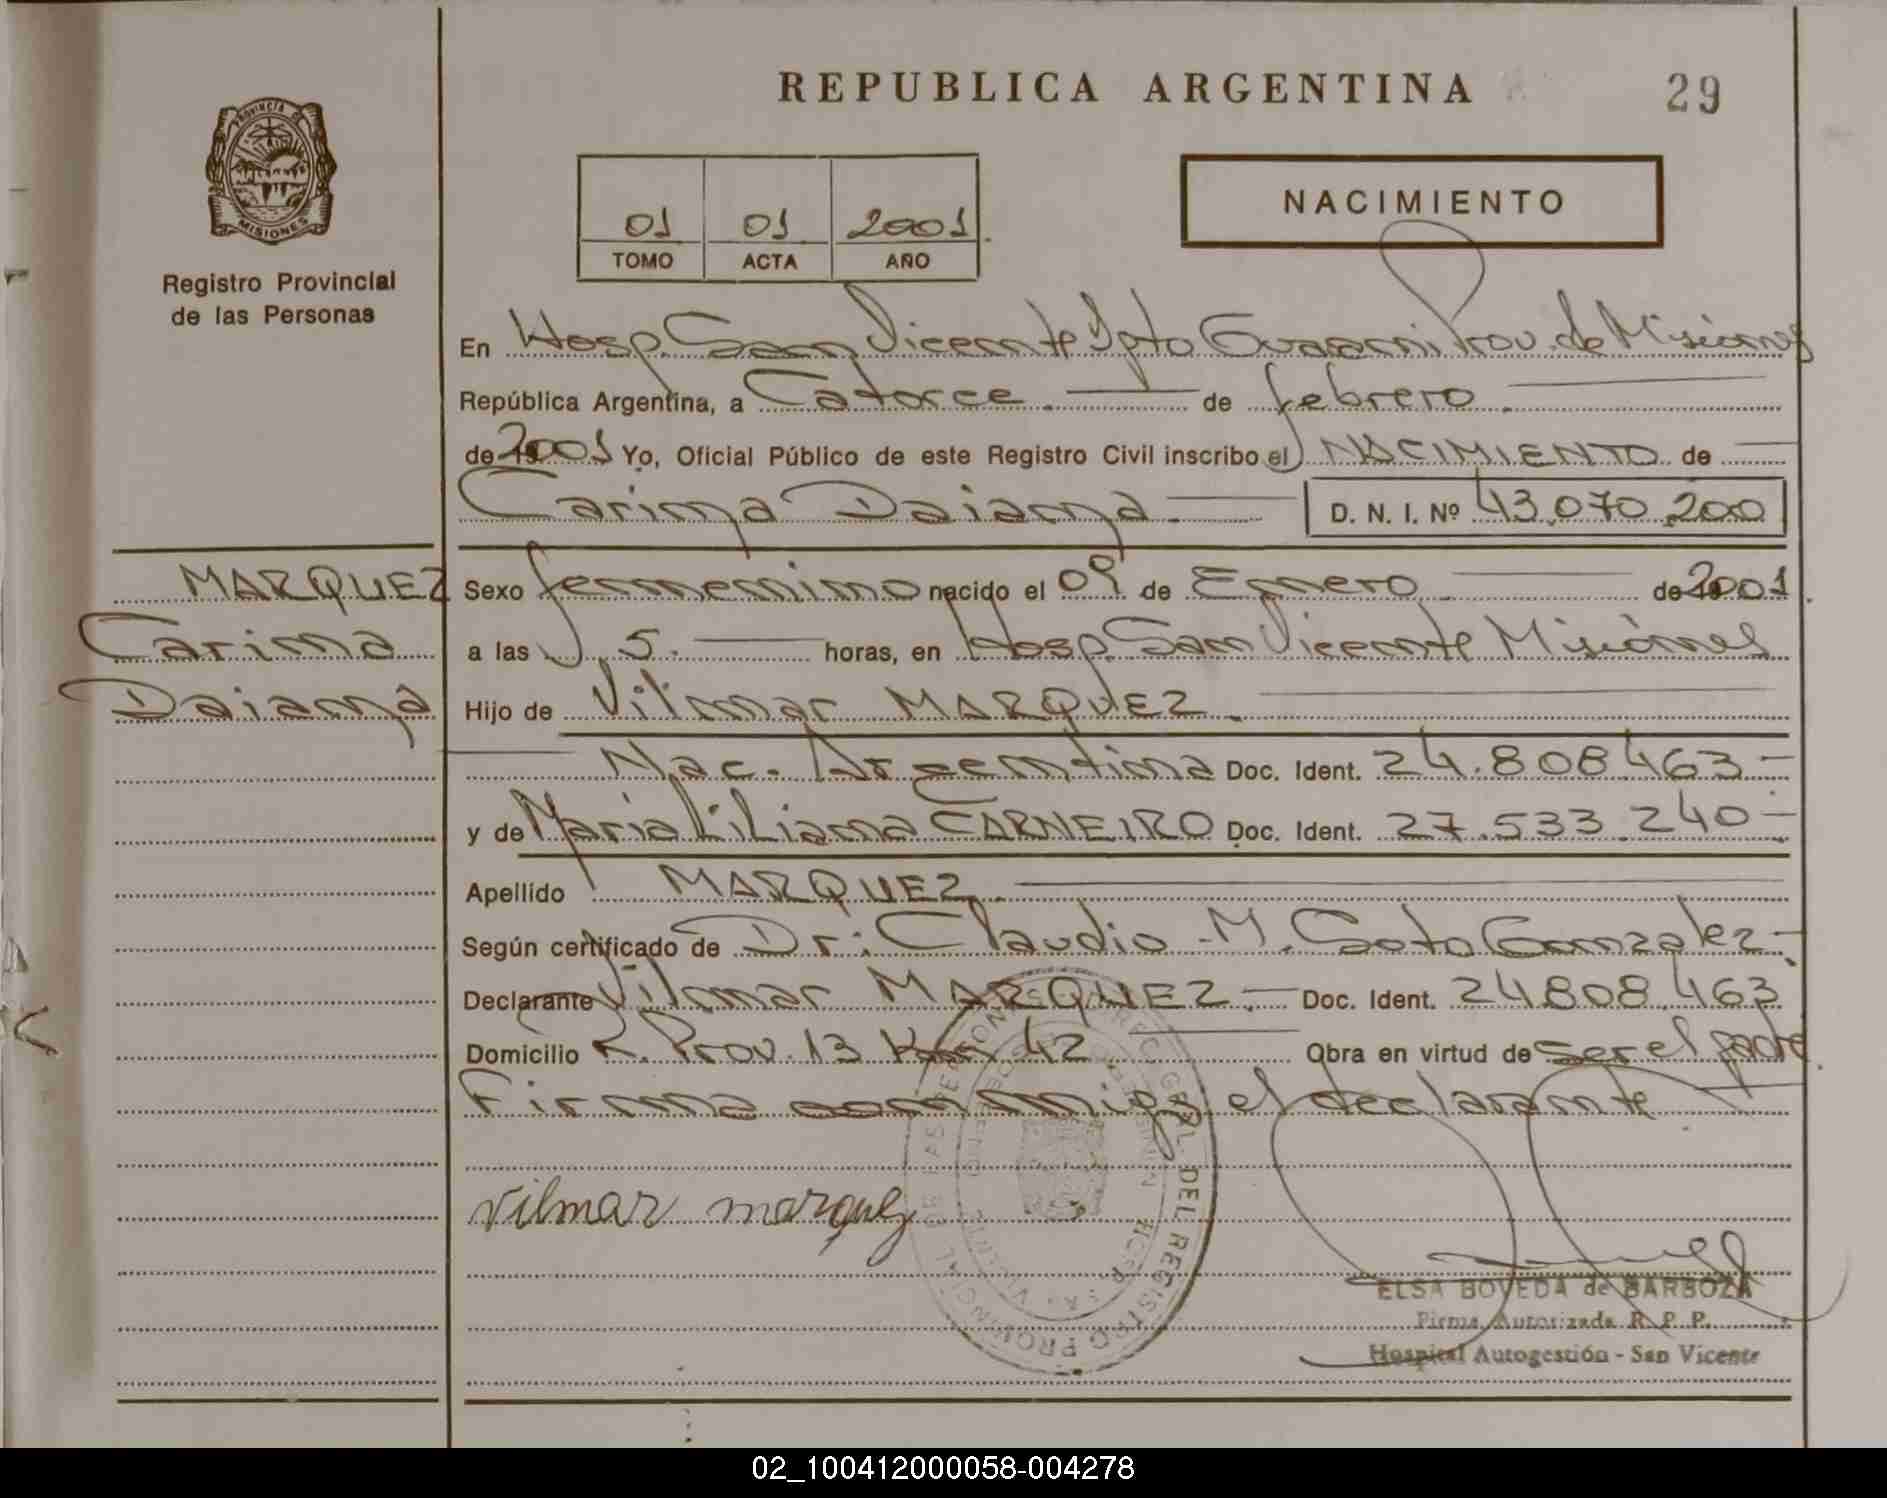 REPUBLICA ARGENTINA
29
PROVINCIA DE
MISIONES
Registro Provincial
de las Personas
01 01 2001
TOMO ACTA AÑO
NACIMIENTO
En Hosp. San Vicente Dpto Guarani Prov. de Misiones
República Argentina, a Catorce de febrero
de 2001 Yo, Oficial Público de este Registro Civil inscribo el NACIMIENTO de
Carina Daiana D. N. I. Nº 43.070.200
MARQUEZ
Carina
Daiana
Sexo femenino nacido el 09 de Enero de 2001
a las 5. horas, en Hosp. San Vicente Misiones
Hijo de Vilmar MARQUEZ
Nac. Argentina Doc. Ident. 24.808.463
y de Maria Liliana CARNEIRO Doc. Ident. 27.533.240
Apellido MARQUEZ
Según certificado de Dr: Claudio M. Soto Gonzalez
Declarante Vilmar MARQUEZ Doc. Ident. 24.808.463
Domicilio R. Prov. 13 Km 42 Obra en virtud de ser el padre
Firma conmigo el declarante
vilmar marquez
ELSA BOVEDA de BARBOZA
Firma Autorizada R. P. P.
Hospital Autogestión - San Vicente
02_100412000058-004278